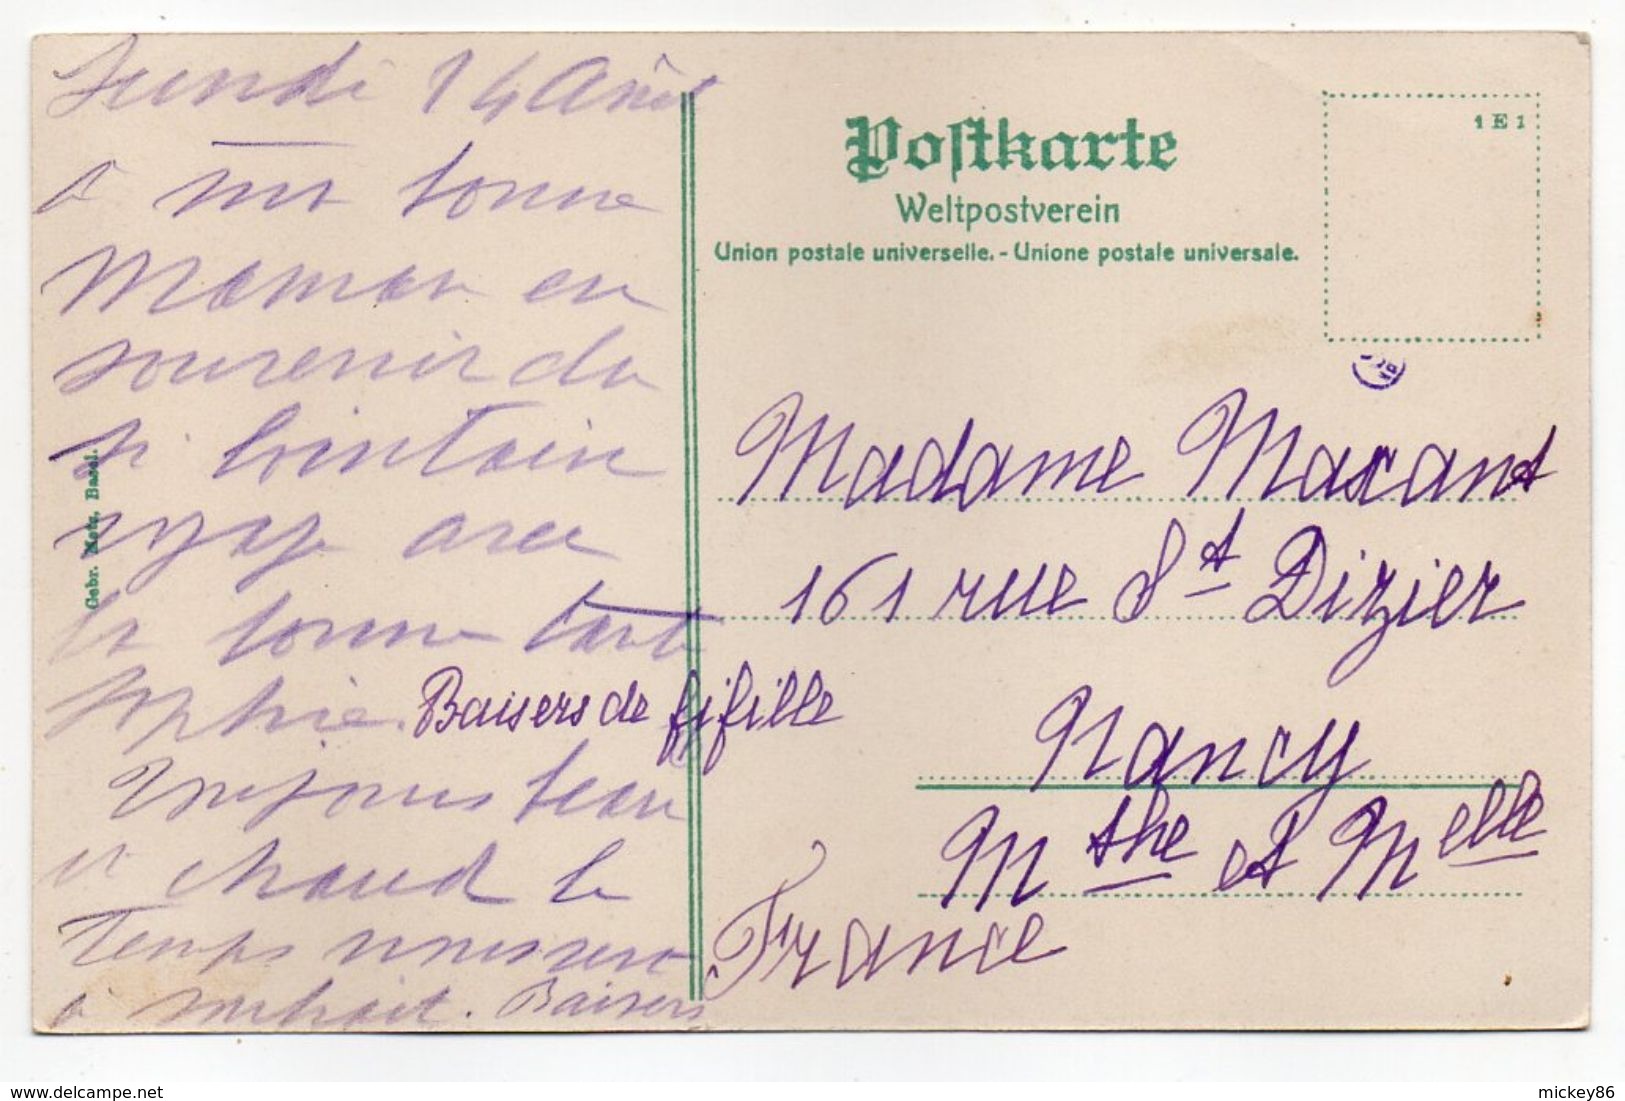 Lundi 14 Août
à ma bonne
Maman en
souvenir du
si lointain
voyage avec
la bonne tante
Sophie. Baisers de fifille
Toujours beau
et chaud le
temps
à souhait. Baisers
Gebr. Metz, Basel.
Postkarte
Weltpostverein
Union postale universelle. - Unione postale universale.
1 E 1
Madame Macant
161 rue St Dizier
Nancy
Mthe et Mlle
France
mickey86
delcampe.net